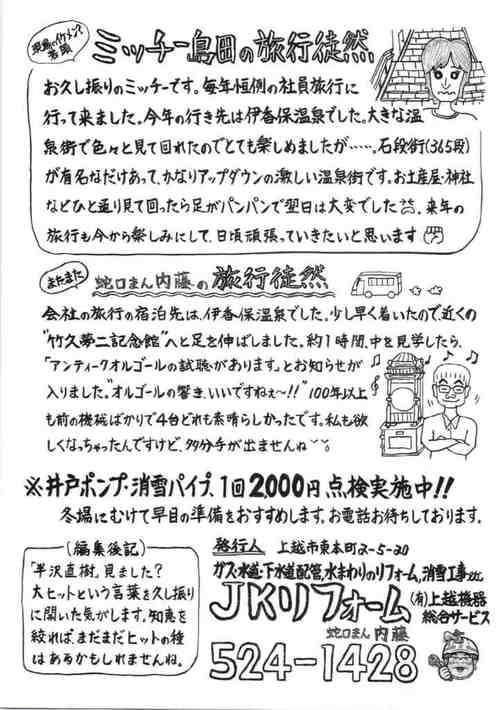 現場のイケメン?
若頭
ミッチー島田の旅行徒然
お久し振りのミッチーです。毎年恒例の社員旅行に
行って来ました。今年の行き先は伊香保温泉でした。大きな温
泉街で色々と見て回れたのでとても楽しめましたが……。石段街(365段)
が有名なだけあって、かなりアップダウンの激しい温泉街です。お土産屋・神社
などひと通り見て回ったら足がパンパンで翌日は大変でした 来年の
旅行も今から楽しみにして、日頃頑張っていきたいと思います
またまた
蛇口まん内藤の旅行徒然
会社の旅行の宿泊先は、伊香保温泉でした。少し早く着いたので近くの
"竹久夢二記念館"へと足を伸ばしました。約1時間、中を見学したら、
「アンティークオルゴールの試聴があります。」とお知らせが
入りました。"オルゴールの響き、いいですねぇ〜!!" 100年以上
も前の機械ばかりで4台どれも素晴らしかったです。私も欲
しくなっちゃったんですけど、多分手が出ませんね
※井戸ポンプ・消雪パイプ、1回2,000円点検実施中!!
冬場にむけて早目の準備をおすすめします。お電話お待ちしております。
(編集後記)
「半沢直樹」見ました?
大ヒットという言葉を久し振り
に聞いた気がします。知恵を
絞れば、まだまだヒットの種
はあるかもしれませんね。
発行人 上越市東本町2-5-20
ガス・水道・下水道配管、水まわりのリフォーム、消雪工事etc
JKリフォーム
(有)上越機器
総合サービス
蛇口まん 内藤
524-1428